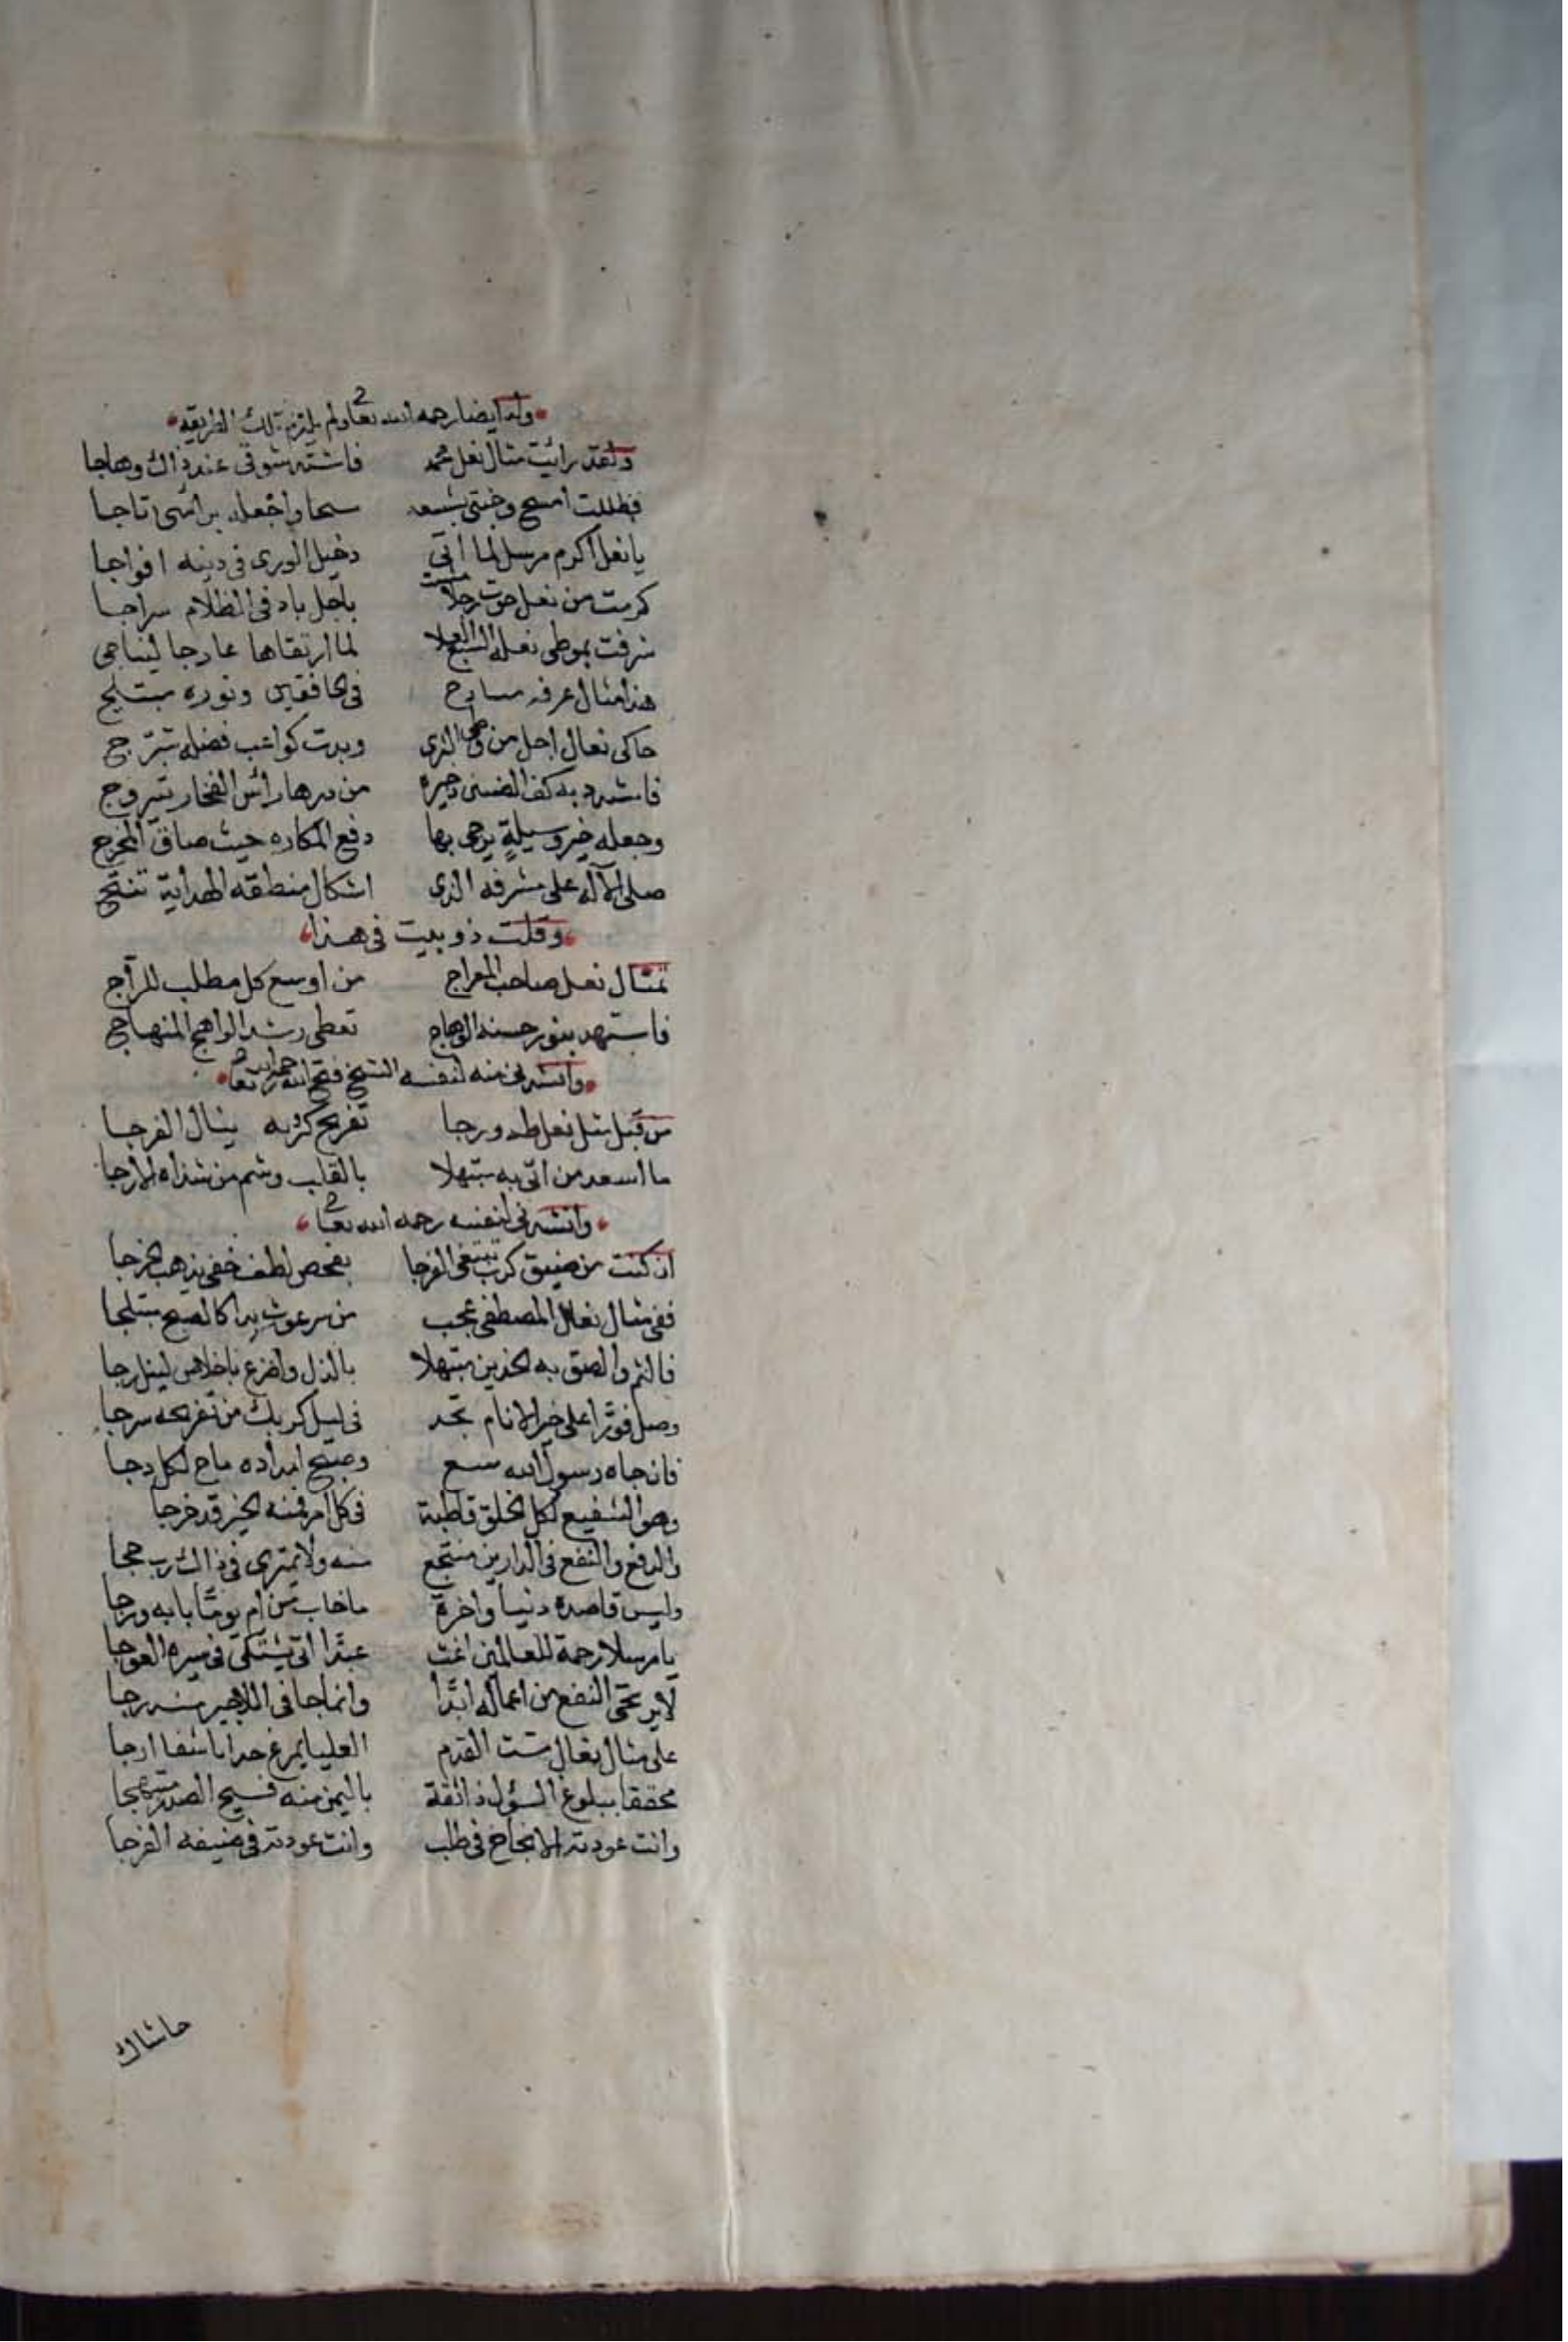 وله ايضا رحمه الله تعا ولم يلتزم تلك الطريقه
ولقد رأيت مثال نعل محمد فاشتد شوقي عند ذاك وهاجا
فظللت امسح وجنتي بشسعه سحا واجعله براسي تاجا
يا نعل اكرم مرسل لما اتى دخل الورى في دينه افواجا
كرمت من نعل حوت رجلا مشت باجل باد في الظلام سراجا
شرفت بموطى نعله السبع العلا لما ارتقاها عارجا ليناجي
هذا مثال عرفه سارح في الخافقين ونوره يتبلج
حاكى نعال اجل من وطى الثرى وبدت كواعب فضله تتبرج
فاشدد به كف الضنى من درها رأس الفخار يتروج
وجعله خير وسيلة يرجى بها دفع المكاره حيث ضاق المخرج
صلى الاله على مشرفه الذي اشكال منطقه الهداية تنتج
وقلت ذو بيت في هذا
تمثال نعل صاحب المعراج من اوسع كل مطلب للراج
فاستهد بنور حسنه الوهاج تعطى رشد الواهج المنهاج
وانشدني منه لنفسه الشيخ فتح الله رحمه الله تعا
من قبل مثل نعل طه ورجا تفريج كربه ينال الفرجا
ما اسعد من اتى به مبتهلا بالقلب وشم من شذاه الارجا
وانشدني لنفسه رحمه الله تعا
ان كنت من ضيق كرب تبتغي الفرجا بفحص لطف خفي يذهب الحرجا
ففي مثال نعال المصطفى عجب من سر غوث بدا كالصبح مبتلجا
فالثم والصق به الخدين مبتهلا بالذل واضرع باخلاص لنيل رجا
وصل فورا على خير الانام تجد في ليل كربك من تفريجه سرجا
فان جاه رسول الله متسع وصبح امداده ماح لكل دجا
وهو الشفيع لكل الخلق قاطبة في كل امر فمنه الخير قد خرجا
والدفع والنفع في الدارين منتجع منه ولا تمترى في ذاك رب حجا
وليس قاصده دنيا واخرة ما خاب من ام يوما بابه ورجا
يا مرسلا رحمة للعالمين اغث عبدا اتى يشتكى في سيره العوجا
لا يرتجى النفع من اعماله ابدا وانما جا في اللاجين منه رجا
على مثال نعال مست القدم العليا يمرغ خدا ناشقا ارجا
محققا ببلوغ السؤل ذائقة باليمن منه فسيح الصدر مبتهجا
وانت عودته الانجاح في طلب وانت عودته في ضيقه الفرجا
حاشاك